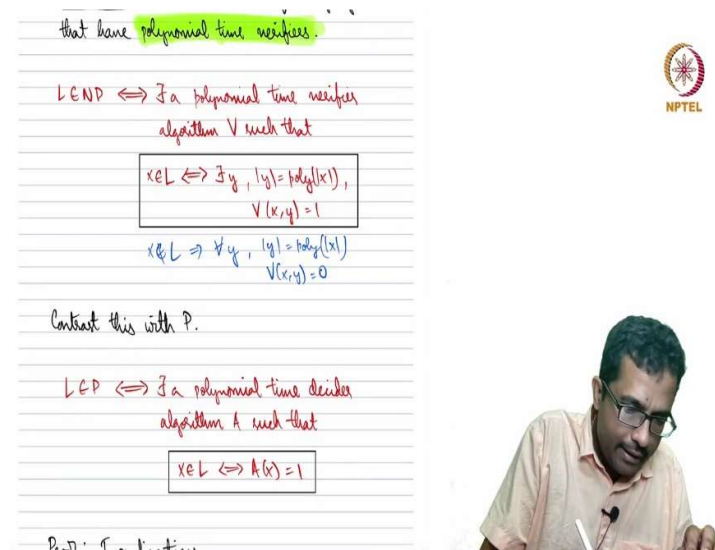 that have polynomial time verifiers.
L∈NP ⟺ ∃ a polynomial time verifier
algorithm V such that
x∈L ⟺ ∃y, |y|=poly(|x|),
V(x,y)=1
x∉L ⇒ ∀y, |y|=poly(|x|)
V(x,y)=0
Contrast this with P.
L∈P ⟺ ∃ a polynomial time decider
algorithm A such that
x∈L ⟺ A(x)=1
NPTEL